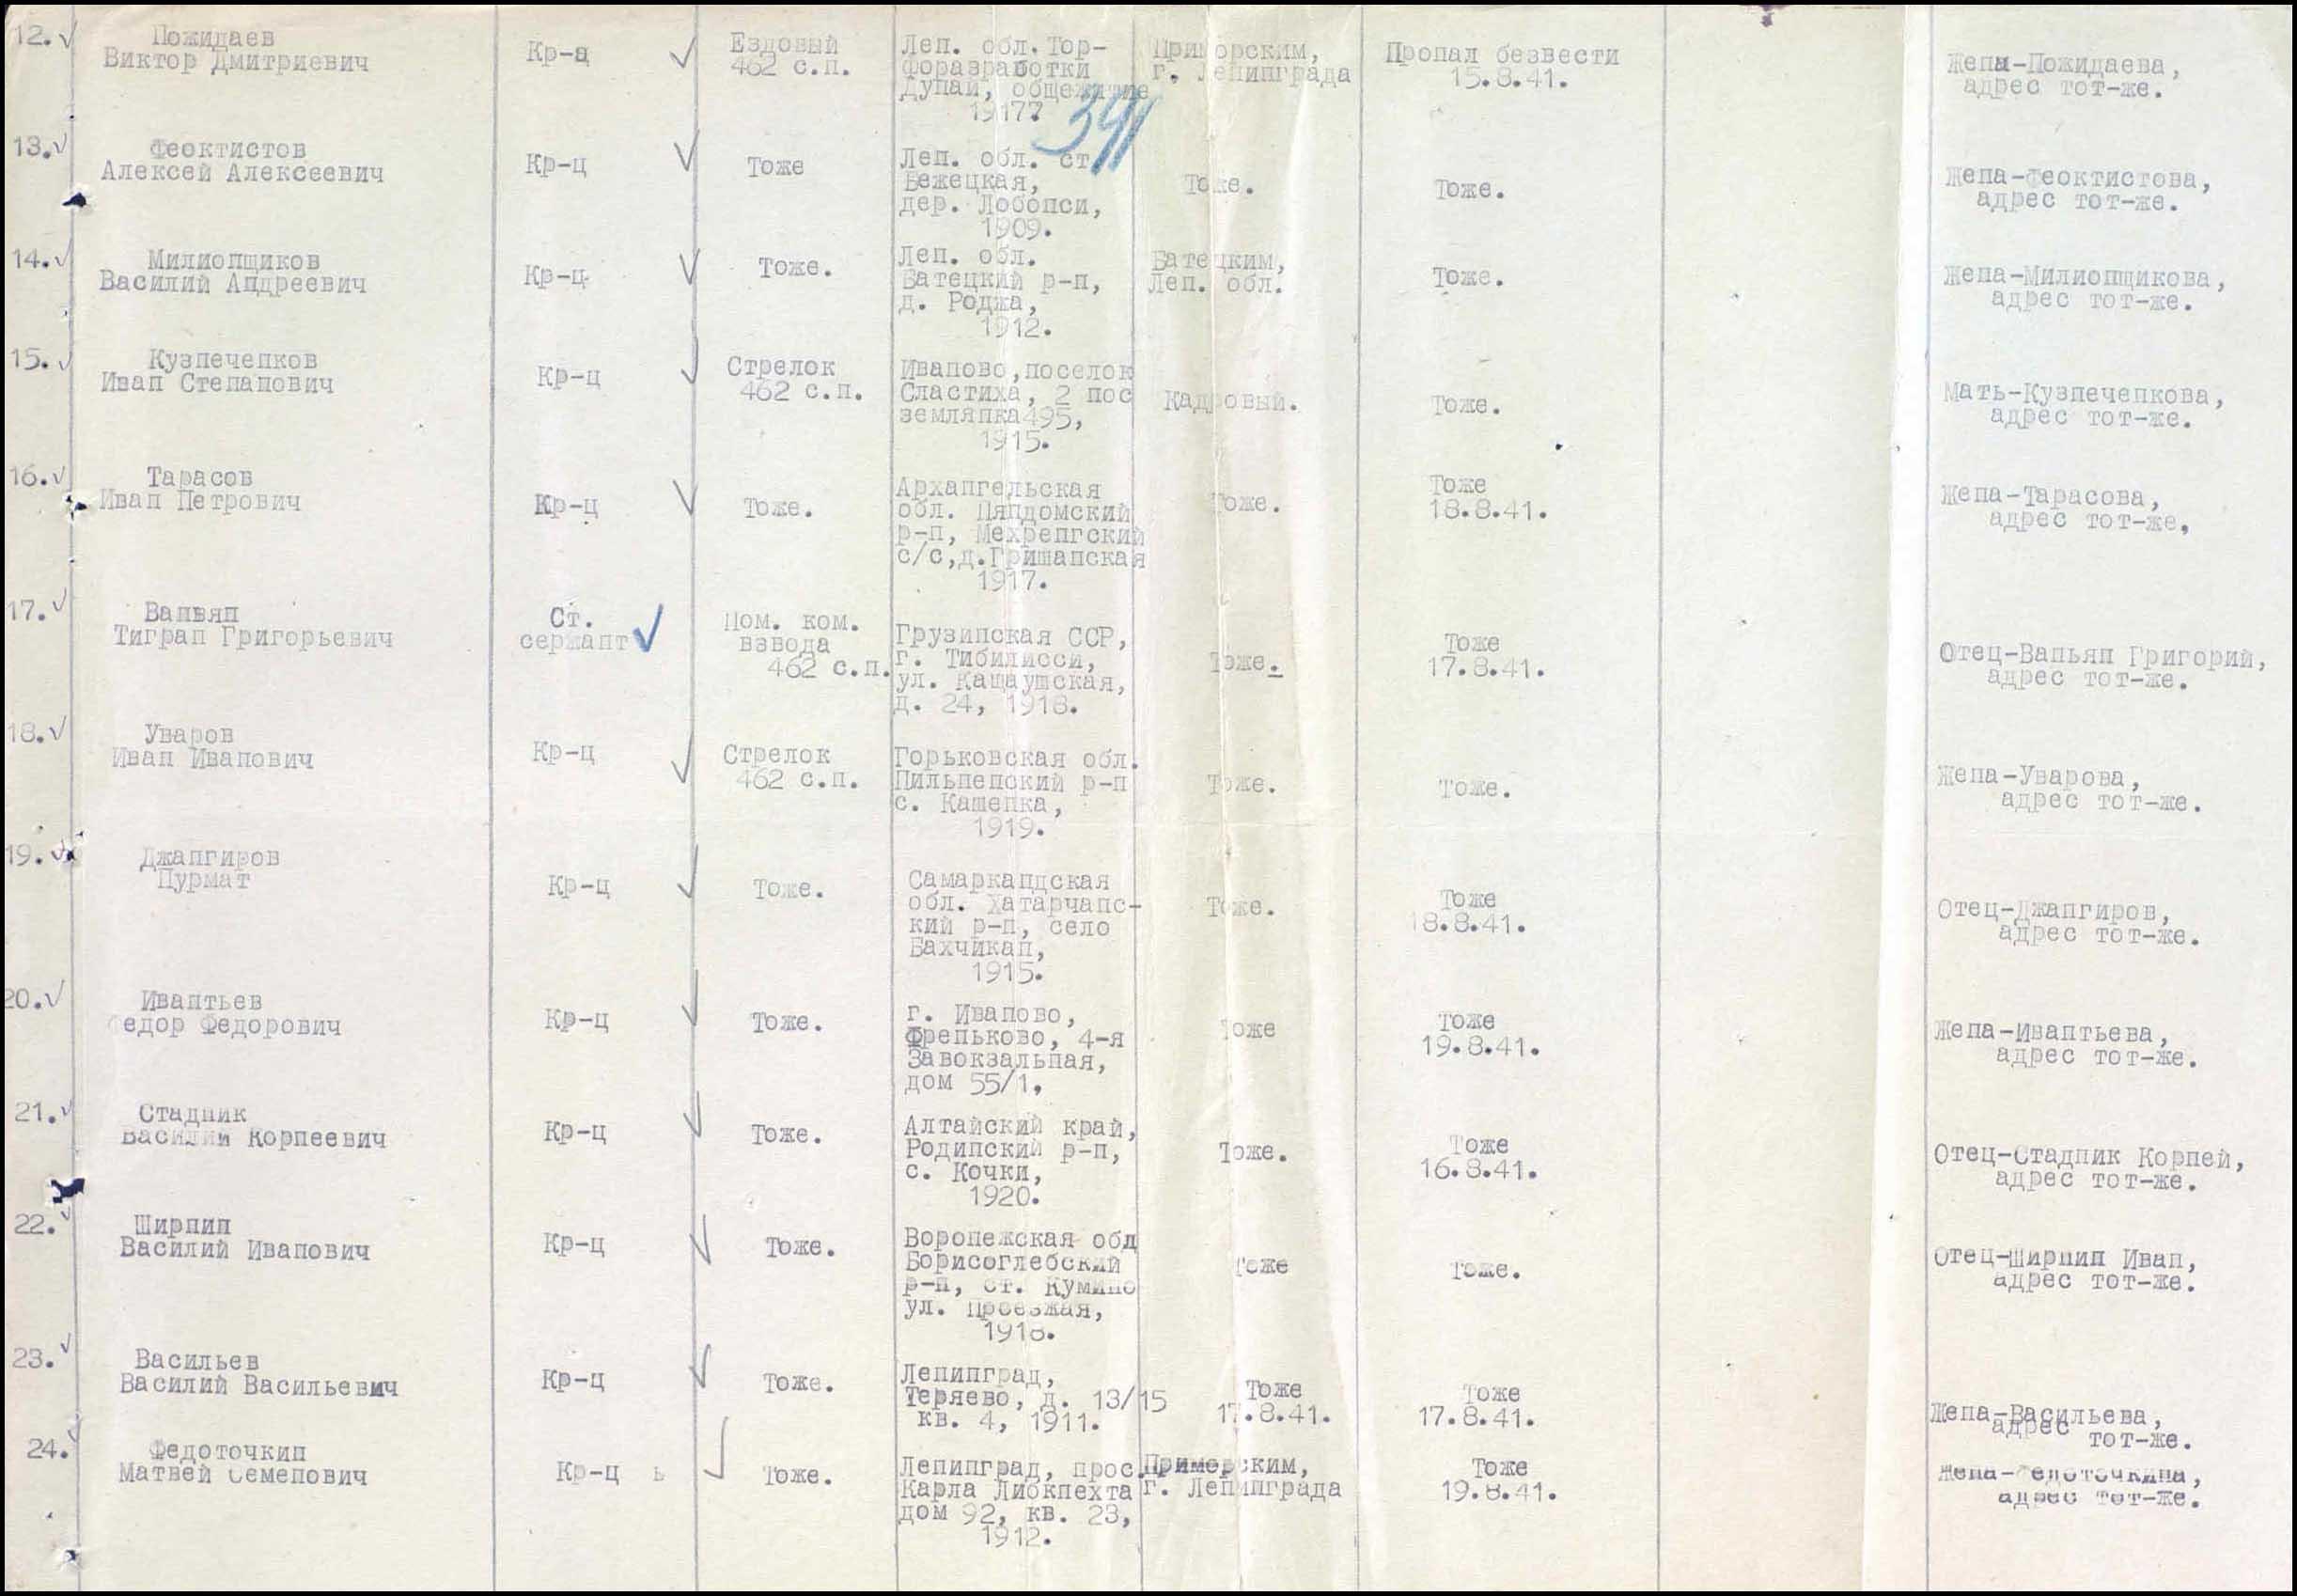 12.
Пожидаев
Виктор Дмитриевич
Кр-а
Ездовый
462 с.п.
Лен. обл. Тор-
форазработки
Дунай, общежитие
1917?
Приморским,
г. Ленинграда
Пропал безвести
15.8.41.
Жена-Пожидаева,
адрес тот-же.
391
13.
Феоктистов
Алексей Алексеевич
Кр-ц
Тоже
Лен. обл. ст
Бежецкая,
дер. Лобонси,
1909.
Тоже.
Тоже.
Жена-Феоктистова,
адрес тот-же.
14.
Милионщиков
Василий Андреевич
Кр-ц
Тоже.
Лен. обл.
Батецкий р-н,
д. Роджа,
1912.
Батецким,
Лен. обл.
Тоже.
Жена-Милионщикова,
адрес тот-же.
15.
Кузнеченков
Иван Степанович
Кр-ц
Стрелок
462 с.п.
Иваново, поселок
Сластиха, 2 пос
землянка 495,
1915.
Кадровый.
Тоже.
Мать-Кузнеченкова,
адрес тот-же.
16.
Тарасов
Иван Петрович
Кр-ц
Тоже.
Архангельская
обл. Няндомский
р-н, Мехренгский
с/с, д. Гришанская
1917.
Тоже.
Тоже
18.8.41.
Жена-Тарасова,
адрес тот-же,
17.
Ваньян
Тигран Григорьевич
Ст.
сержант
Пом. ком.
взвода
462 с.п.
Грузинская ССР,
г. Тибилисси,
ул. Кащаушская,
д. 24, 1918.
Тоже.
Тоже
17.8.41.
Отец-Ваньян Григорий,
адрес тот-же.
18.
Уваров
Иван Иванович
Кр-ц
Стрелок
462 с.п.
Горьковская обл.
Пильненский р-н
с. Кашенка,
1919.
Тоже.
Тоже.
Жена-Уварова,
адрес тот-же.
19.
Джангиров
Нурмат
Кр-ц
Тоже.
Самаркандская
обл. Хатарчанс-
кий р-н, село
Бахчикан,
1915.
Тоже.
Тоже
18.8.41.
Отец-Джангиров,
адрес тот-же.
20.
Ивантьев
Федор Федорович
Кр-ц
Тоже.
г. Иваново,
Френьково, 4-я
Завокзальная,
дом 55/1,
Тоже
Тоже
19.8.41.
Жена-Ивантьева,
адрес тот-же.
21.
Стадник
Василий Корнеевич
Кр-ц
Тоже.
Алтайский край,
Родинский р-н,
с. Кочки,
1920.
Тоже.
Тоже
16.8.41.
Отец-Стадник Корней,
адрес тот-же.
22.
Ширнин
Василий Иванович
Кр-ц
Тоже.
Воронежская обл
Борисоглебский
р-н, ст. Кумино
ул. Проезжая,
1918.
Тоже
Тоже.
Отец-Ширнин Иван,
адрес тот-же.
23.
Васильев
Василий Васильевич
Кр-ц
Тоже.
Ленинград,
Теряево, д. 13/15
кв. 4, 1911.
Тоже
17.8.41.
Тоже
17.8.41.
Жена-Васильева,
адрес
тот-же.
24.
Федоточкин
Матвей Семенович
Кр-ц ь
Тоже.
Ленинград, прос.
Карла Либкнехта
дом 92, кв. 23,
1912.
Приморским,
г. Ленинграда
Тоже
19.8.41.
Жена-Федоточкина,
адрес тот-же.